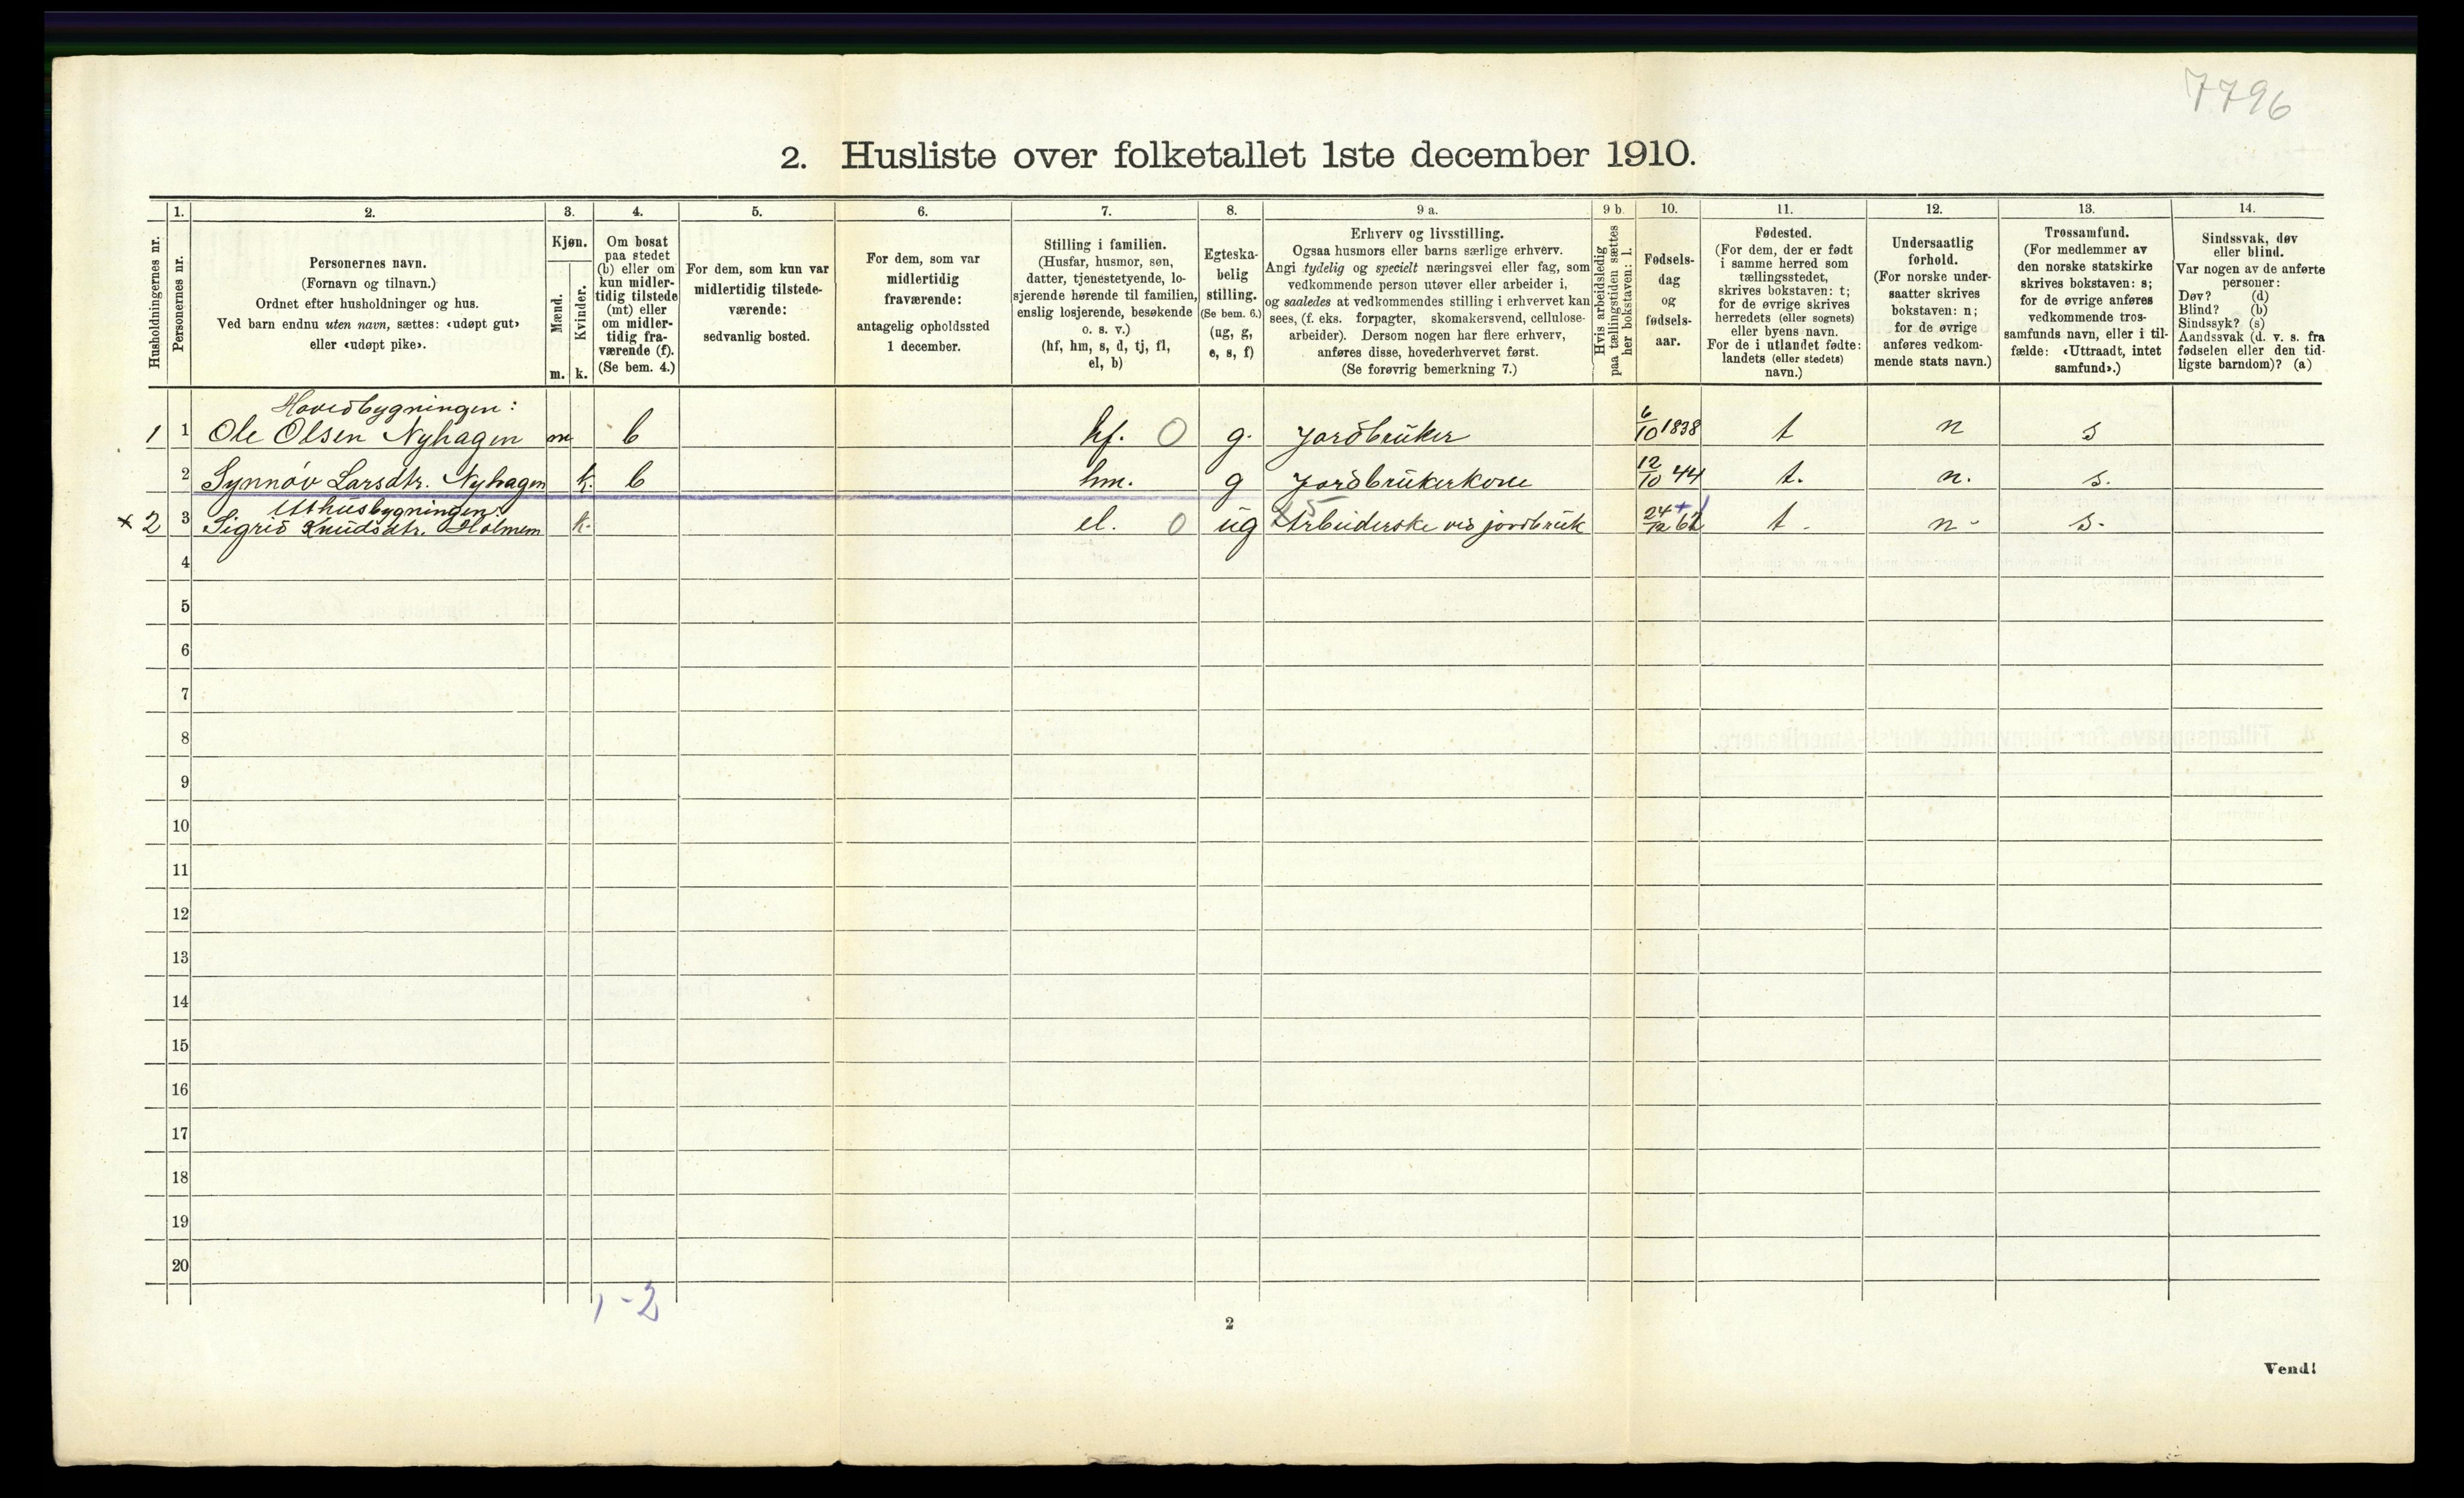 7796
2. Husliste over folketallet 1ste december 1910.
Husholdningernes nr.
1.
Personernes nr.
2.
Personernes navn.
(Fornavn og tilnavn.)
Ordnet efter husholdninger og hus.
Ved barn endnu uten navn, sættes: «udøpt gut»
eller «udøpt pike».
3.
Kjøn.
Mænd.
Kvinder.
m. k.
4.
Om bosat
paa stedet
(b) eller om
kun midler-
tidig tilstede
(mt) eller
om midler-
tidig fra-
værende (f).
(Se bem. 4.)
5.
For dem, som kun var
midlertidig tilstede-
værende:
sedvanlig bosted.
6.
For dem, som var
midlertidig
fraværende:
antagelig opholdssted
1 december.
7.
Stilling i familien.
(Husfar, husmor, søn,
datter, tjenestetyende, lo-
sjerende hørende til familien,
enslig losjerende, besøkende
o. s. v.)
(hf, hm, s, d, tj, fl,
el, b)
8.
Egteska-
belig
stilling.
(Se bem. 6.)
(ug, g,
e, s, f)
9 a.
Erhverv og livsstilling.
Ogsaa husmors eller barns særlige erhverv.
Angi tydelig og specielt næringsvei eller fag, som
vedkommende person utøver eller arbeider i,
og saaledes at vedkommendes stilling i erhvervet kan
sees, (f. eks. forpagter, skomakersvend, cellulose-
arbeider). Dersom nogen har flere erhverv,
anføres disse, hovederhvervet først.
(Se forøvrig bemerkning 7.)
9 b.
Hvis arbeidsledig
paa tællingstiden sættes
her bokstaven: l.
10.
Fødsels-
dag
og
fødsels-
aar.
11.
Fødested.
(For dem, der er født
i samme herred som
tællingsstedet,
skrives bokstaven: t;
for de øvrige skrives
herredets (eller sognets)
eller byens navn.
For de i utlandet fødte:
landets (eller stedets)
navn.)
12.
Undersaatlig
forhold.
(For norske under-
saatter skrives
bokstaven: n;
for de øvrige
anføres vedkom-
mende stats navn.)
13.
Trossamfund.
(For medlemmer av
den norske statskirke
skrives bokstaven: s;
for de øvrige anføres
vedkommende tros-
samfunds navn, eller i til-
fælde: «Uttraadt, intet
samfund».)
14.
Sindssvak, døv
eller blind.
Var nogen av de anførte
personer:
Døv? (d)
Blind? (b)
Sindssyk? (s)
Aandssvak (d. v. s. fra
fødselen eller den tid-
ligste barndom)? (a)
Hovedbygningen:
1 1 Ole Olsen Nyhagen m b hf. 0 g. Jordbruker 6/10 1838 t n s
2 Synnøv Larsdtr. Nyhagen k. b hm. g Jordbrukerkone 12/10 44 t. n. s.
Uthusbygningen:
x 2 3 Sigrid Knudsdtr. Holmem k. el. 0 ug Arbeiderske ved jordbruk 24/12 t. n. s.
4
5
6
7
8
9
10
11
12
13
14
15
16
17
18
19
20
1-2
2
Vend!